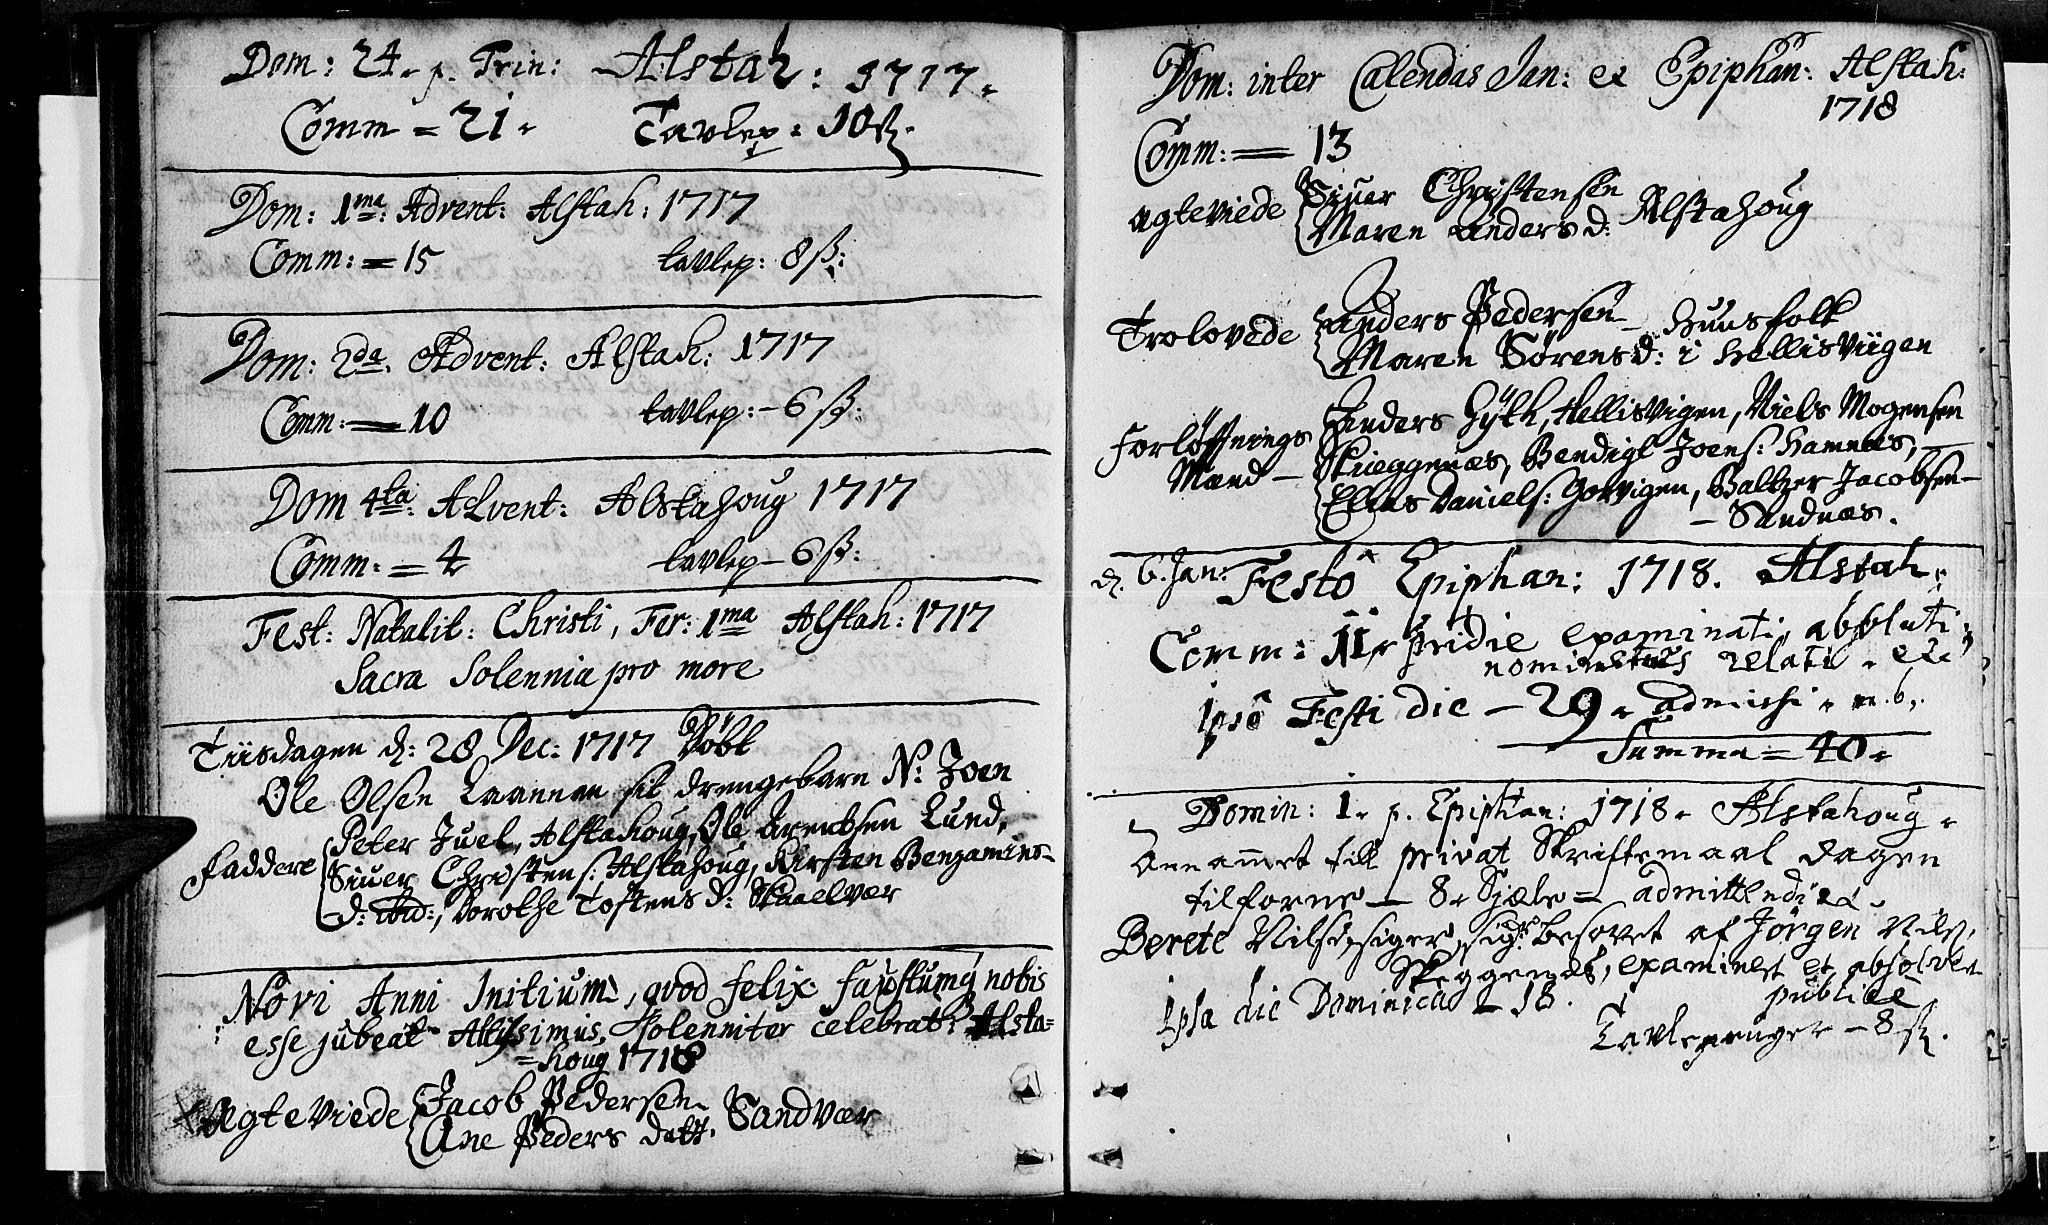 Dom: 24. p. Trin: Alstah: 1717.
Comm = 21. Tavlep: 10 ß.
Dom: 1ma: Advent: Alstah: 1717
Comm: = 15 tavlep: 8 ß:
Dom: 2da. Advent: Alstah: 1717
Comm: = 10 tavlep: - 6 ß:
Dom 4ta: Advent: Alstahoug 1717
Comm: = 4 tavlep - 6 ß:
Fest: Natalit: Christi, Fer: 1ma Alstah: 1717
Sacra Solennia pro more
Tiisdagen d: 28 Dec: 1717 Døbt
Ole Olsen Laannan sit drengebarn N: Joen
Faddere Peter Juel, Alstahoug, Ole Arentsen Lund,
Siuer Christens: Alstahoug, Kirsten Benjamins-
d: ibid:, Dorothe Tostens d: Skaaelvær
Novi Anni Initium, qvod felix faustumq nobis
esse jubeat Altissimus, solenniter celebrat: Alsta=
=houg 1718
Ægteviede Jacob Pedersen
Ane Peders datt. Sandvær
Dom: inter Calendas Jan: et Epiphan: Alstah:
1718
Comm: = 13
Ægteviede Siuer Christensen
Maren Anders d: Alstahoug
Trolovede Anders Pedersen - Huusfolk
Maren Sørens d: i Hellisviigen
Forløftnings Anders Gÿth, Hellisvigen, Niels Mogensen
Mænd - Skieggenæs, Bendigt Joens: Hamnæs,
Elias Daniels: Gorvigen, Baltzer Jacobsen -
- Sandnæs.
d. 6. Jan: Festo Epiphan: 1718. Alstah:
Comm: 11. pridie examinati, absoluti
relati. etc
ipso Festi die - 29. admissi. n. b.
Summa = 40.
Domin: 1. p. Epiphan: 1718. Alstahoug.
Annammet till privat Skriftemaal dagen
tilforne - 8. Sjæle = admittendi
Berete Nilsd. siger sig besovet af Jørgen Nils.
Skeggenæs, examinet et absolvet
publice
Ipsa die Dominica - 18.
Tavlepenger - 8 ß.